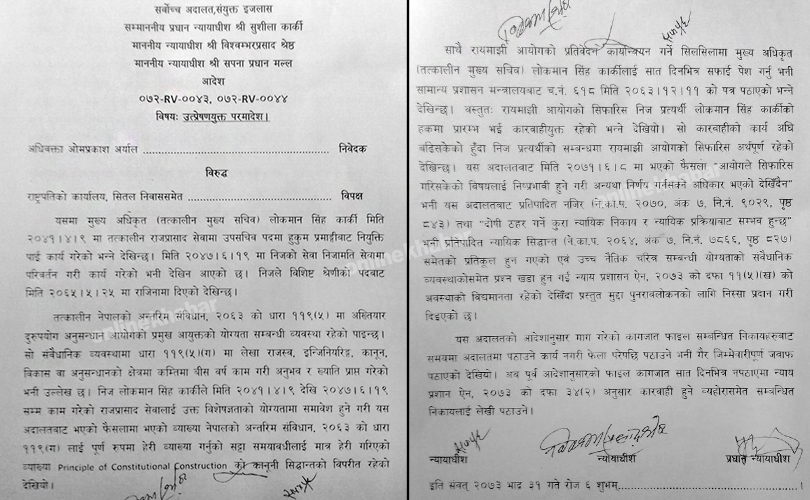 सर्बोच्च अदालत,संयुक्त इजलास
सम्माननीय प्रधान न्यायाधीश श्री सुशीला कार्की
माननीय न्यायाधीश श्री विश्वम्भरप्रसाद श्रेष्ठ
माननीय न्यायाधीश श्री सपना प्रधान मल्ल
आदेश
०७२-RV-००४३, ०७२-RV-००४४
विषयः उत्प्रेषणयुक्त परमादेश।
अधिवक्ता ओमप्रकाश अर्याल ........ निवेदक
विरुद्ध
राष्ट्रपतिको कार्यालय, सितल निवाससमेत ........ विपक्ष
यसमा मुख्य अधिकृत (तत्कालीन मुख्य सचिव) लोकमान सिंह कार्की मिति
२०४१।४।९ मा तत्कालीन राजप्रासाद सेवामा उपसचिव पदमा हुकुम प्रमाङ्गीबाट नियुक्ति
पाई कार्य गरेको भन्ने देखिन्छ। मिति २०४७।६।१९ मा निजको सेवा निजामति सेवामा
परिवर्तन गरी कार्य गरेको भनी देखिन आएको छ। निजले विशिष्ट श्रेणीको पदबाट
मिति २०६५।५।२५ मा राजिनामा दिएको देखिन्छ।
तत्कालीन नेपालको अन्तरिम संविधान, २०६३ को धारा ११९(५) मा अख्तियार
दुरुपयोग अनुसन्धान आयोगको प्रमुख आयुक्तको योग्यता सम्बन्धी व्यवस्था रहेको पाइन्छ।
सो संवैधानिक व्यवस्थामा धारा ११९(५)(ग) मा लेखा राजस्व, इन्जिनियरिङ्ग, कानून,
विकास वा अनुसन्धानको क्षेत्रमा कम्तिमा बीस वर्ष काम गरी अनुभव र ख्याति प्राप्त गरेको
भनी उल्लेख छ। निज लोकमान सिंह कार्कीले मिति २०४१।४।९ देखि २०४७।६।१९
सम्म काम गरेको राजप्रासाद सेवालाई उक्त विशेषज्ञताको योग्यतामा समावेश हुने गरी यस
अदालतबाट भएको फैसलामा भएको व्याख्या नेपालको अन्तरिम संविधान, २०६३ को धारा
११९(ग) लाई पूर्ण रुपमा हेरी व्याख्या गर्नुको सट्टा समयावधीलाई मात्र हेरी गरिएको
व्याख्या Principle of Constitutional Construction को कानूनी सिद्धान्तको विपरीत रहेको
देखियो।
साथै रायमाझी आयोगको प्रतिवेदन कार्यान्वयन गर्ने सिलसिलामा मुख्य अधिकृत
(तत्कालीन मुख्य सचिव) लोकमान सिंह कार्कीलाई सात दिनभित्र सफाई पेश गर्नु भनी
सामान्य प्रशासन मन्त्रालबाट च.नं. ६१८ मिति २०६३।१२।११ को पत्र पठाएको भन्ने
देखिन्छ। वस्तुतः रायमाझी आयोगको सिफारिस निज प्रत्यर्थी लोकमान सिंह कार्कीको
हकमा प्रारम्भ भई कारबाहीयुक्त रहेको भन्ने देखियो। सो कारबाहीको कार्य अघि
बढिसकेको हुँदा निज प्रत्यर्थीको सम्बन्धमा रायमाझी आयोगको सिफारिस अर्थपूर्ण रहेको
देखिन्छ। यस अदालतबाट मिति २०७१।६।८ मा भएको फैसला "आयोगले सिफारिस
गरिसकेको विषयलाई निष्प्रभावी हुने गरी अन्यथा निर्णय गर्नसक्ने अधिकार भएको देखिँदैन"
भनी यस अदालतबाट प्रतिपादित नजिर (ने.का.प. २०७०, अंक ७, नि.नं. ९०२९, पृष्ठ
८४३) तथा "दोषी ठहर गर्ने कुरा न्यायिक निकाय र न्यायिक प्रक्रियाबाट सम्भव हुन्छ"
भनी प्रतिपादित न्यायिक सिद्धान्त (ने.का.प. २०६४, अंक ७, नि.नं. ७८६६, पृष्ठ ८२७)
समेतको प्रतिकूल हुन गएको एवं उच्च नैतिक चरित्र सम्बन्धी योग्यताको संवैधानिक
व्यवस्थाकोसमेत प्रश्न खडा हुन गई न्याय प्रशासन ऐन, २०७३ को दफा ११(५)(ख) को
अवस्थाको विद्यमानता रहेको देखिँदा प्रस्तुत मुद्दा पुनरावलोकनको लागि निस्सा प्रदान गरी
दिइएको छ।
यस अदालतको आदेशानुसार माग गरेको कागजात फाइल सम्बन्धित निकायहरुबाट
समयमा अदालतमा पठाउने कार्य नगरी फेला परेपछि पठाउने भनी गैर जिम्मेवारीपूर्ण जवाफ
पठाएको देखियो। अब पूर्व आदेशानुसारको फाइल कागजात सात दिनभित्र नपठाएमा न्याय
प्रशासन ऐन, २०७३ को दफा ३४(२) अनुसार कारवाही हुने व्यहोरासमेत सम्बन्धित
निकायलाई लेखी पठाउने।
न्यायाधीश न्यायाधीश प्रधान न्यायाधीश
इति संवत् २०७३ भाद्र ३१ गते रोज ६ शुभम् ........